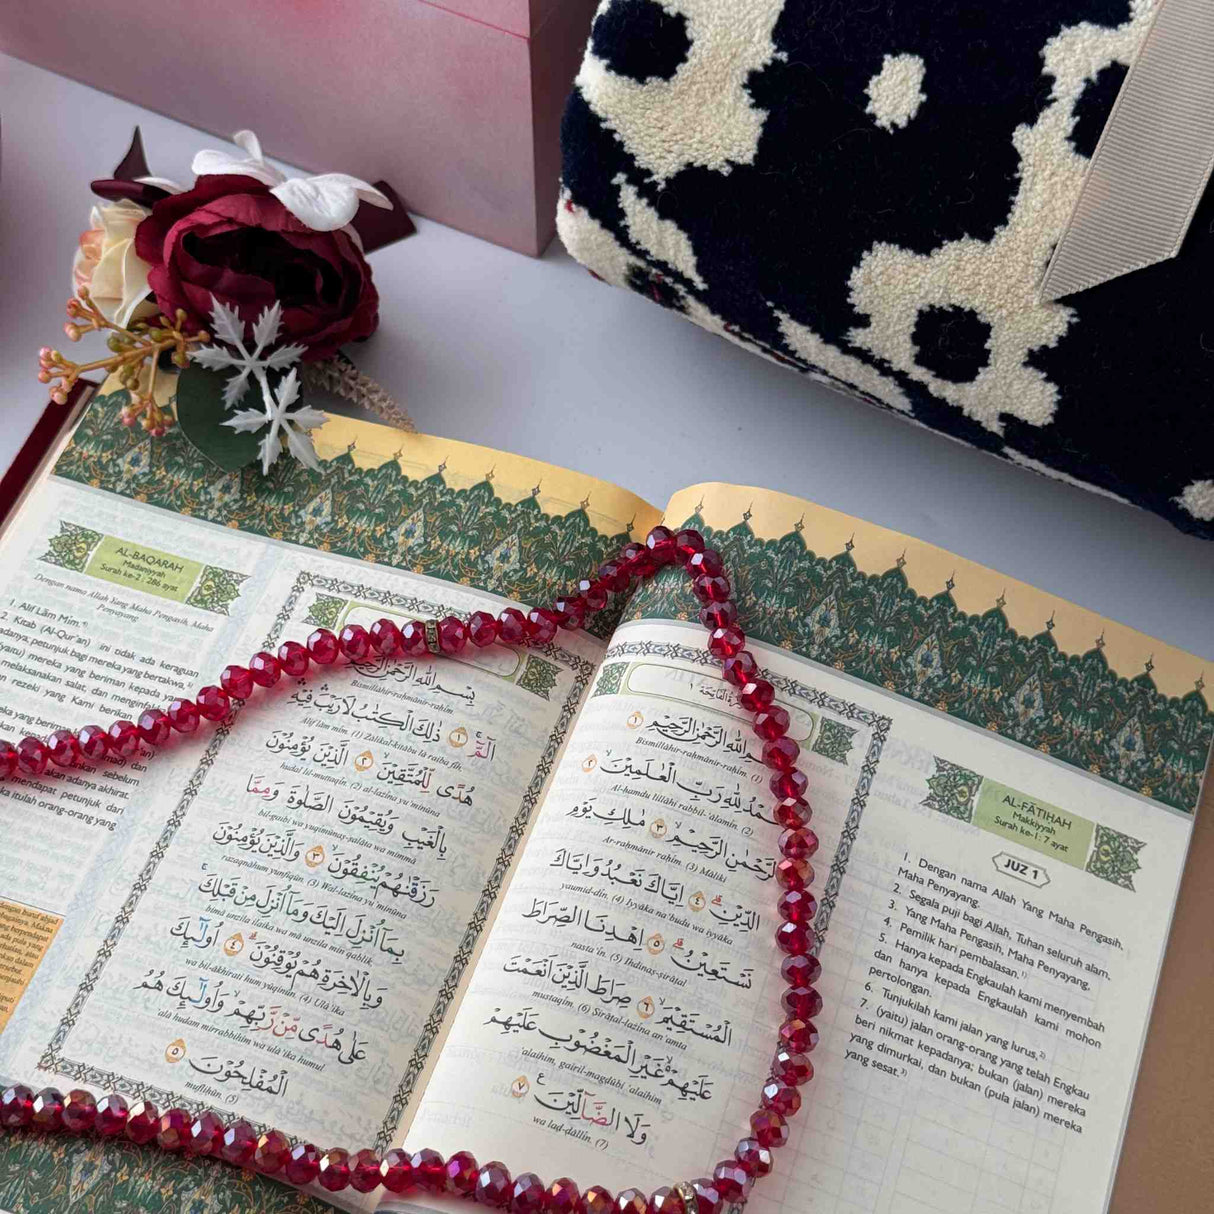 سُوْرَةُ الْفَاتِحَةِ ١
اللّٰهِ الرَّحْمٰنِ الرَّحِيْمِ ١
Bismillāhir-raḥmānir-raḥīm. (1)
لِلّٰهِ رَبِّ الْعٰلَمِيْنَۙ ٢
Al-ḥamdu lillāhi rabbil-'ālamīn. (2)
الرَّحْمٰنِ الرَّحِيْمِۙ ٣ مٰلِكِ يَوْمِ
Ar-raḥmānir raḥīm. (3) Māliki
الدِّيْنِۗ ٤ اِيَّاكَ نَعْبُدُ وَاِيَّاكَ
yaumid-dīn. (4) Iyyāka na'budu wa iyyāka
نَسْتَعِيْنُۗ ٥ اِهْدِنَا الصِّرَاطَ
nasta'īn. (5) Ihdinaṣ-ṣirāṭal
الْمُسْتَقِيْمَۙ ٦ صِرَاطَ الَّذِيْنَ اَنْعَمْتَ
mustaqīm. (6) Ṣirāṭal-lażīna an'amta
عَلَيْهِمْ ەۙ غَيْرِ الْمَغْضُوْبِ عَلَيْهِمْ
'alaihim, gairil-magḍūbi 'alaihim
وَلَا الضَّاۤلِّيْنَ ࣖ ٧
wa laḍ-ḍāllīn. (7)
AL-FĀTIḤAH
Makkiyyah
Surah ke-1 : 7 ayat
JUZ 1
1. Dengan nama Allah Yang Maha Pengasih,
Maha Penyayang.
2. Segala puji bagi Allah, Tuhan seluruh alam,
3. Yang Maha Pengasih, Maha Penyayang,
4. Pemilik hari pembalasan.¹⁾
5. Hanya kepada Engkaulah kami menyembah
dan hanya kepada Engkaulah kami mohon
pertolongan.
6. Tunjukilah kami jalan yang lurus,²⁾
7. (yaitu) jalan orang-orang yang telah Engkau
beri nikmat kepadanya; bukan (jalan) mereka
yang dimurkai, dan bukan (pula jalan) mereka
yang sesat.³⁾
بِسْمِ اللّٰهِ الرَّحْمٰنِ الرَّحِيْمِ
Bismillāhir-raḥmānir-raḥīm
الۤمّۤ ۚ ١ ذٰلِكَ الْكِتٰبُ لَا رَيْبَۛ فِيْهِۛ
Alif lām mīm. (1) Żālikal-kitābu lā raiba fīh,
هُدًى لِّلْمُتَّقِيْنَۙ ٢ الَّذِيْنَ يُؤْمِنُوْنَ
hudal lil-muttaqīn. (2) al-lażīna yu'minūna
بِالْغَيْبِ وَيُقِيْمُوْنَ الصَّلٰوةَ وَمِمَّا
bil-gaibi wa yuqīmūnaṣ-ṣalāta wa mimmā
رَزَقْنٰهُمْ يُنْفِقُوْنَۙ ٣ وَالَّذِيْنَ يُؤْمِنُوْنَ
razaqnāhum yunfiqūn. (3) Wal-lażīna yu'minūna
بِمَآ اُنْزِلَ اِلَيْكَ وَمَآ اُنْزِلَ مِنْ قَبْلِكَۚ
bimā unzila ilaika wa mā unzila min qablik
وَبِالْاٰخِرَةِ هُمْ يُوْقِنُوْنَۗ ٤ اُولٰۤىِٕكَ
wa bil-ākhirati hum yūqinūn. (4) Ulā'ika
عَلٰى هُدًى مِّنْ رَّبِّهِمْۙ وَاُولٰۤىِٕكَ هُمُ
'alā hudam mirrabbihim wa ulā'ika humul
الْمُفْلِحُوْنَ ٥
mufliḥūn. (5)
AL-BAQARAH
Madaniyyah
Surah ke-2 : 286 ayat
Dengan nama Allah Yang Maha Pengasih Maha
Penyayang
1. Alif Lām Mīm.⁴⁾
2. Kitab (Al-Qur'an) ini tidak ada keraguan
padanya; petunjuk bagi mereka yang bertakwa,
(yaitu) mereka yang beriman kepada yang
melaksanakan salat, dan menginfak
rezeki yang Kami berikan
yang beriman
akan adanya akhirat.
mendapat petunjuk dari
itulah orang-orang yang